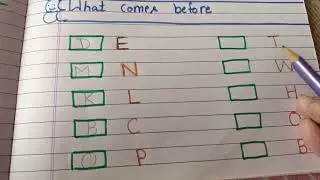 What comes before
D E T
M N W
K L H
B C O
O P B